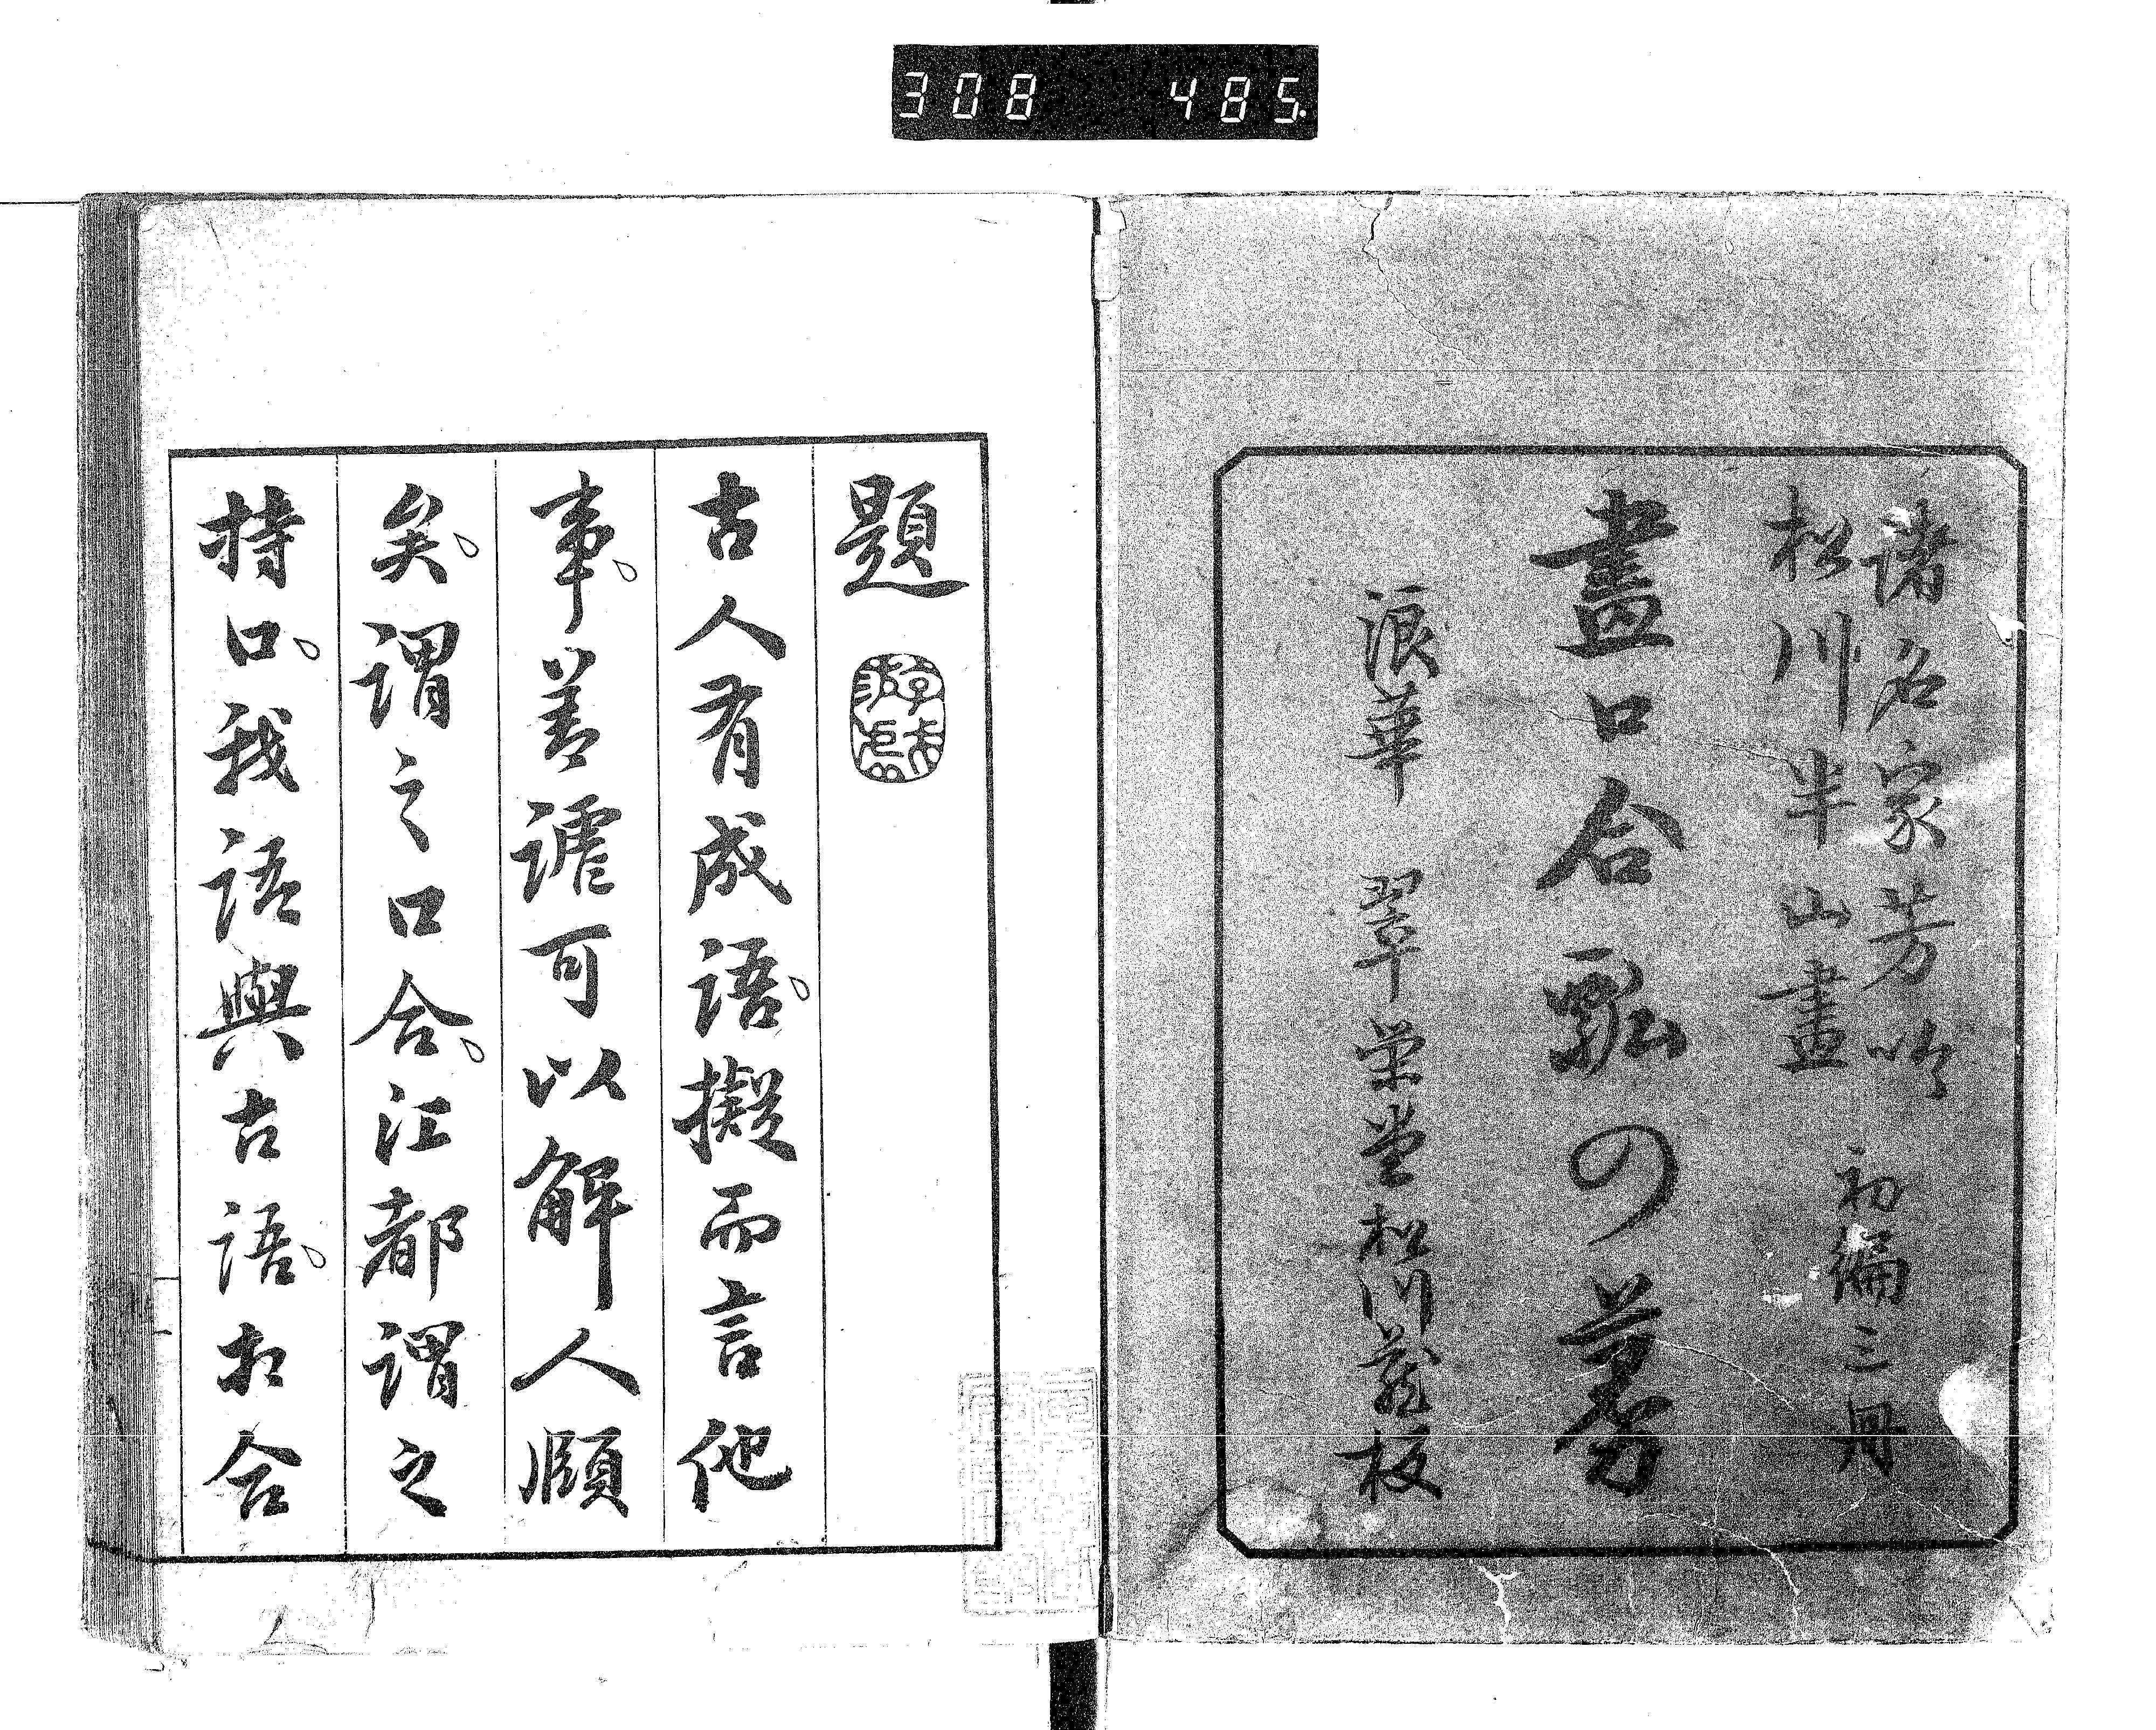 308 485
諸名家芳吟
松川半山畫
初編三冊
畫口合瓢の蔓
浪華 翠栄堂松川蔵板
題
古人有成語擬而言他
事善謔可以解人頤
矣謂之口合江都謂之
持口我語與古語相合